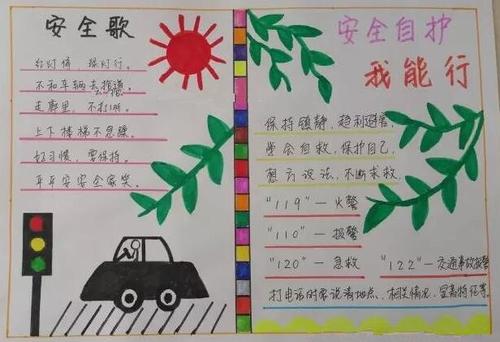 安全歌
红灯停，绿灯行。
不和车辆去抢道。
走廊里，不打闹。
上下楼梯不急躁。
好习惯，要保持。
平平安安全家笑。
安全自护
我能行
保持镇静，趋利避害，
学会自救，保护自己，
想方设法，不断求救，
"119"—火警
"110"—报警
"120"—急救 "122"—交通事故报警
打电话时要说清地点、相关情况，显著特征等。